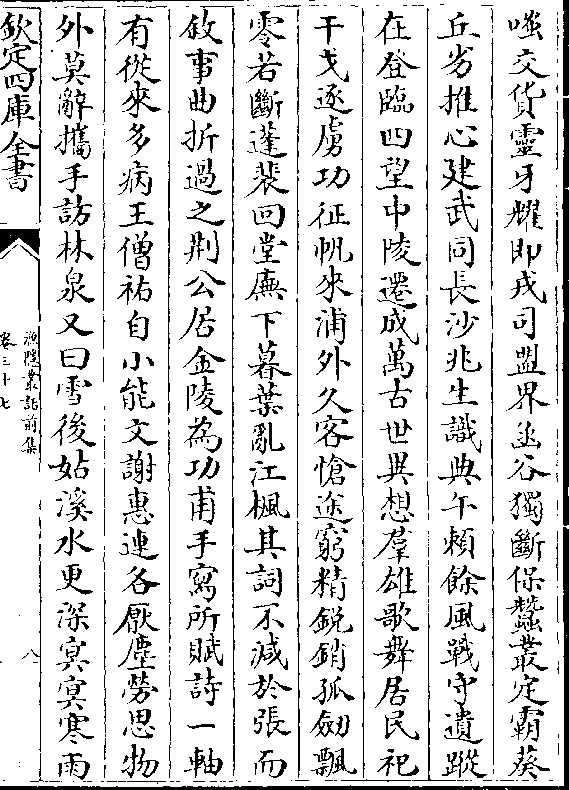 嗤交貨靈牙耀即戎司盟界函谷獨斷保蠶叢定霸葵
丘劣推心建武同長沙兆生識典午頼餘風戰守遺蹤
在登臨四望中陵遷成萬古世異想羣雄歌舞居民祀
干戈逐虜功征帆來浦外久客愴途窮精銳銷孤劒飄
零若斷蓬裴回堂廡下暮葉亂江楓其詞不減於張而
敘事曲折過之荆公居金陵為功甫手寫所賦詩一軸
有從來多病王僧祐自小能文謝惠連各厭塵勞思物
外莫辭攜手訪林泉又曰雪後姑溪水更深冥冥寒雨
欽定四庫全書
漁隱叢話前集
卷三十七
八